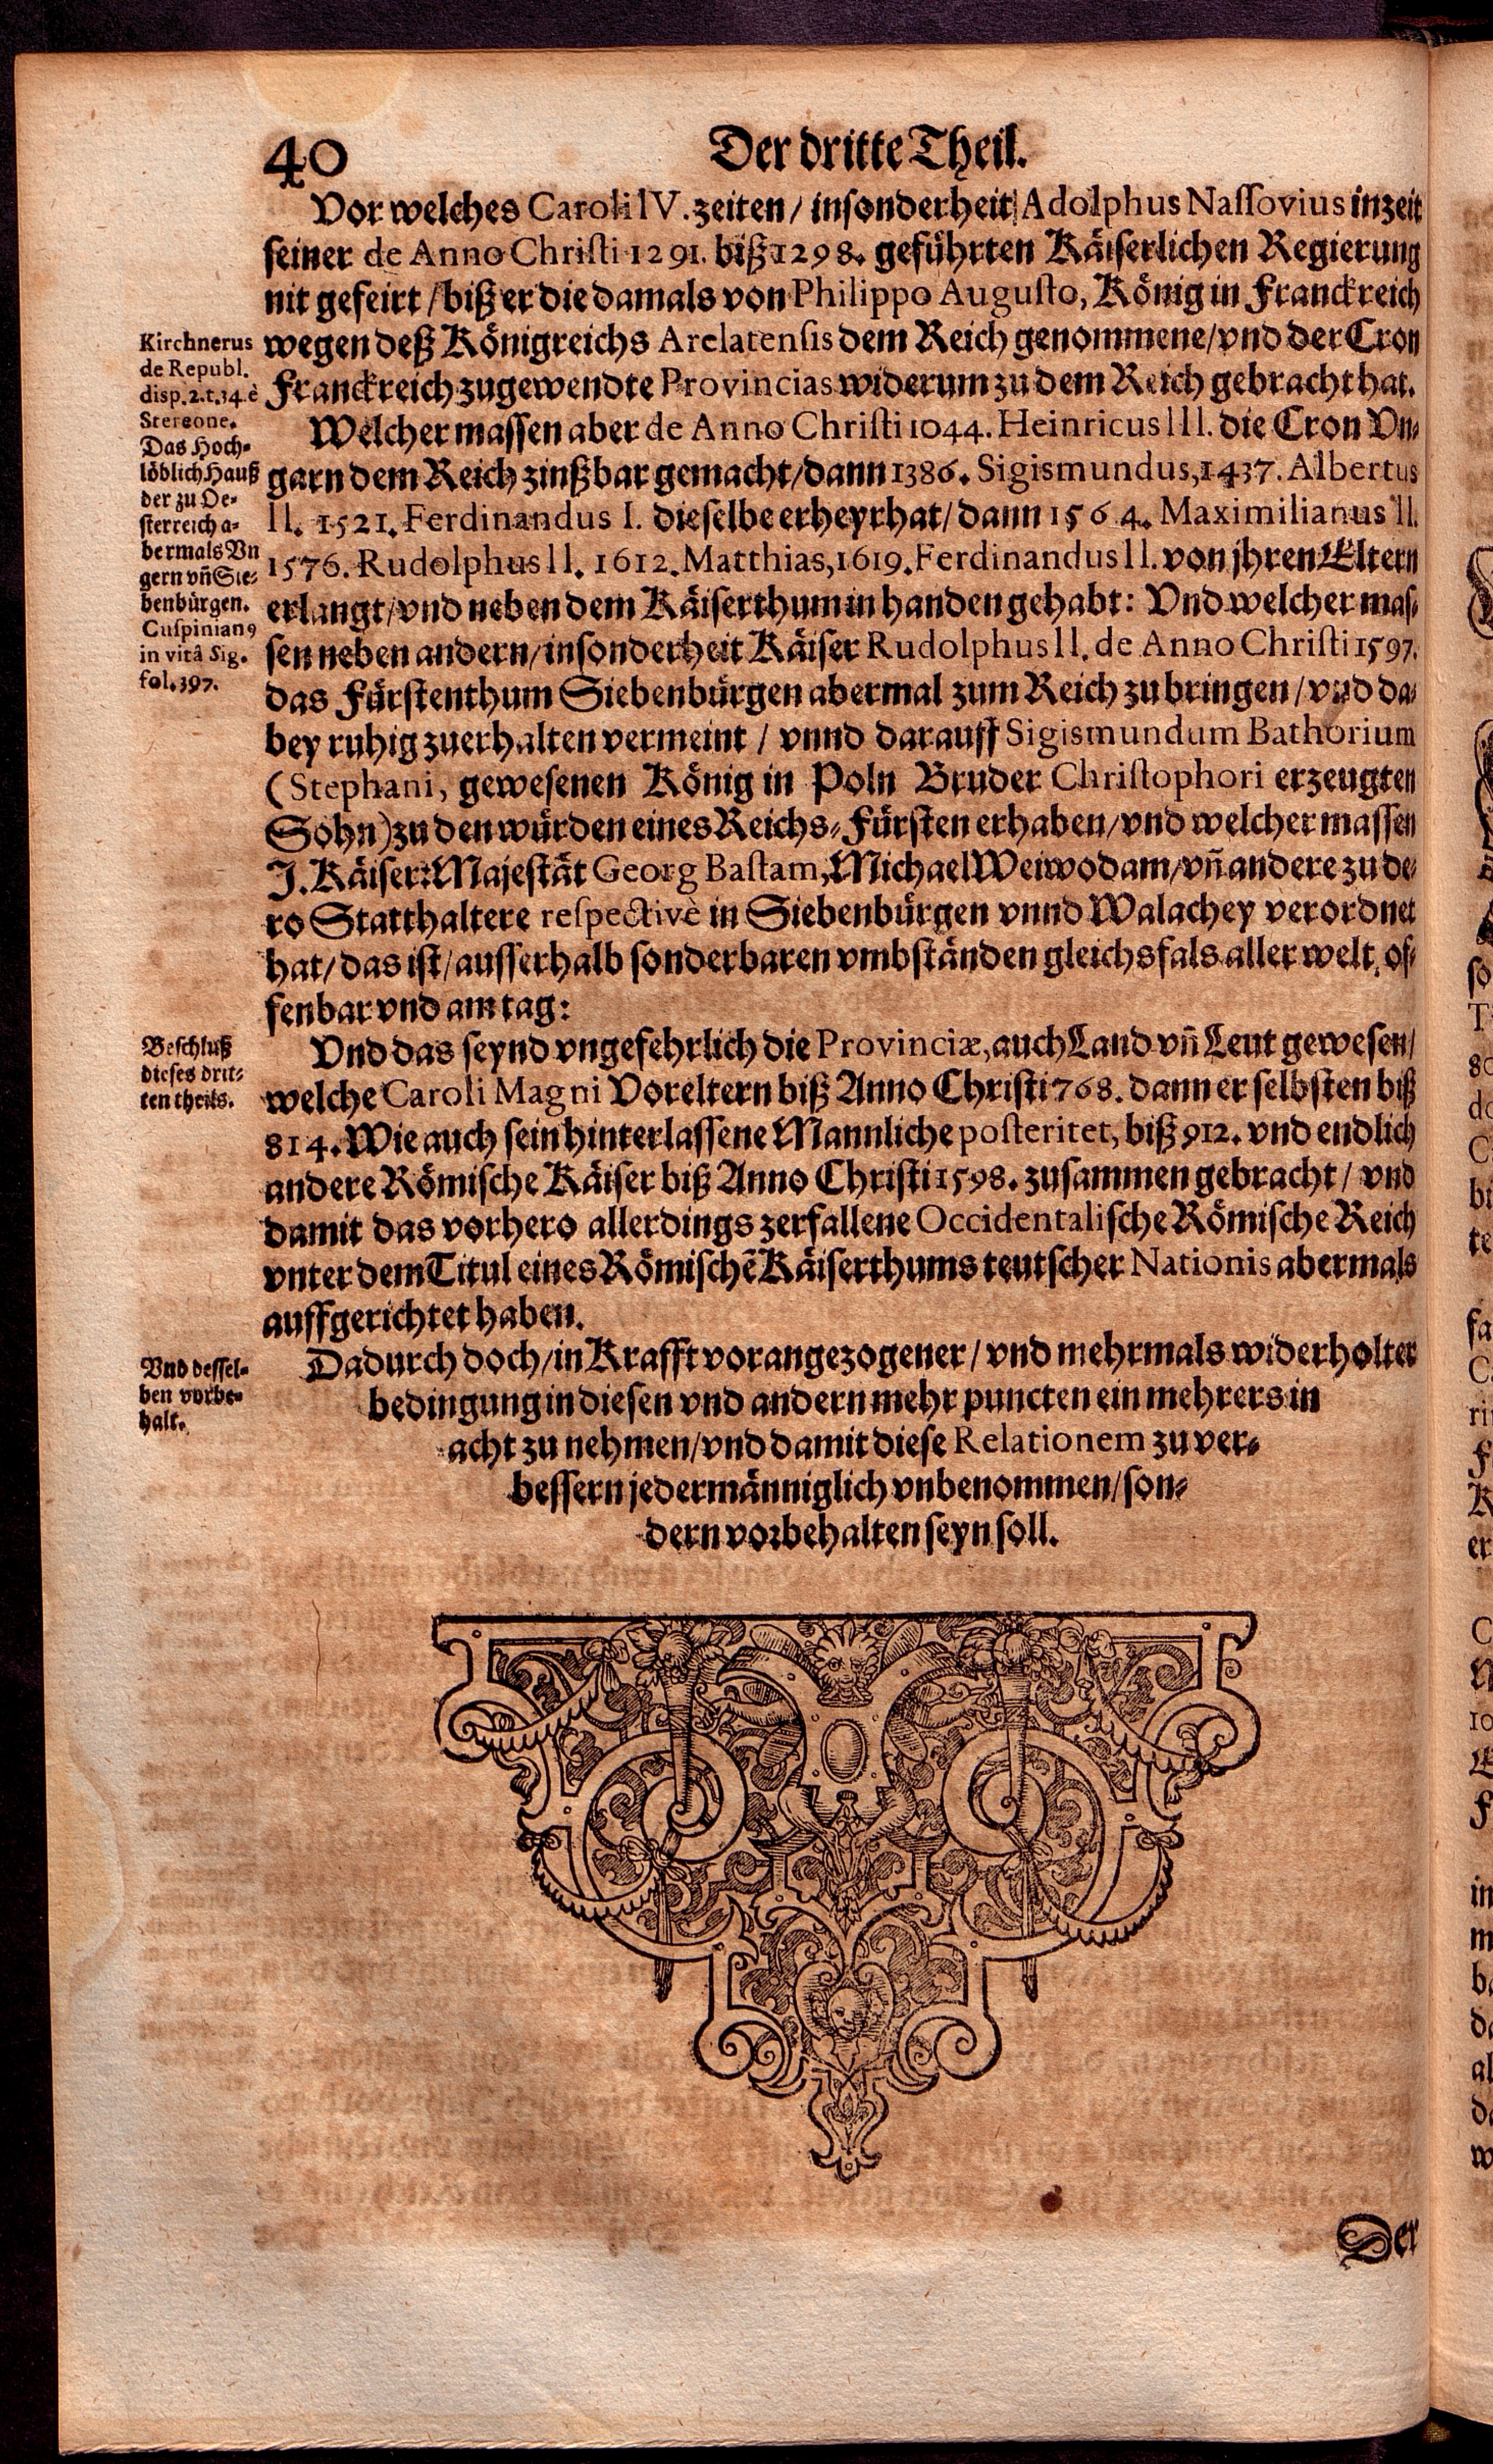 40
Der dritte Theil.
Vor welches Caroli IV. zeiten / insonderheit Adolphus Nassovius in zeit
seiner de Anno Christi 1291. biß 1298. geführten Käiserlichen Regierung
nit gefeirt / biß er die damals von Philippo Augusto, König in Franckreich
wegen deß Königreichs Arelatensis dem Reich genommene / vnd der Cron
Franckreich zugewendte Provincias widerum zu dem Reich gebracht hat.
Kirchnerus
de Republ.
disp. 2. t. 34. è
Stereone.
Das Hoch-
löblich Hauß
der zu Oe-
sterreich a-
bermals Vn
gern vñ Sie-
benbürgen.
Cuspinian9
in vitâ Sig.
fol. 397.
Welcher massen aber de Anno Christi 1044. Heinricus III. die Cron Vn-
garn dem Reich zinßbar gemacht / dann 1386. Sigismundus, 1437. Albertus
II. 1521. Ferdinandus I. dieselbe erheyrhat / dann 1564. Maximilianus II.
1576. Rudolphus II. 1612. Matthias, 1619. Ferdinandus II. von jhren Eltern
erlangt / vnd neben dem Käiserthum in handen gehabt: Vnd welcher mas-
sen neben andern / insonderheit Käiser Rudolphus II. de Anno Christi 1597.
das Fürstenthum Siebenbürgen abermal zum Reich zubringen / vnd da-
bey ruhig zuerhalten vermeint / vnnd darauff Sigismundum Bathorium
(Stephani, gewesenen König in Poln Bruder Christophori erzeugten
Sohn) zu den würden eines Reichs-Fürsten erhaben / vnd welcher massen
J. Käiser: Majestät Georg Bastam, Michael Weiwodam / vñ andere zu de-
ro Statthaltere respectivè in Siebenbürgen vnnd Walachey verordnet
hat / das ist / ausserhalb sonderbaren vmbständen gleichsfals aller welt of-
fenbar vnd am tag:
Beschluß
dieses drit-
ten theils.
Vnd das seynd vngefehrlich die Provinciæ, auch Land vñ Leut gewesen /
welche Caroli Magni Voreltern biß Anno Christi 768. dann er selbsten biß
814. Wie auch sein hinterlassene Mannliche posteritet, biß 912. vnd endlich
andere Römische Käiser biß Anno Christi 1598. zusammen gebracht / vnd
damit das vorhero allerdings zerfallene Occidentalische Römische Reich
vnter dem Titul eines Römischẽ Käiserthums teutscher Nationis abermals
auffgerichtet haben.
Vnd dessel-
ben vorbe-
halt.
Dadurch doch / in Krafft vorangezogener / vnd mehrmals widerholter
bedingung in diesen vnd andern mehr puncten ein mehrers in
acht zu nehmen / vnd damit diese Relationem zu ver-
bessern jedermänniglich vnbenommen / son-
dern vorbehalten seyn soll.
Der